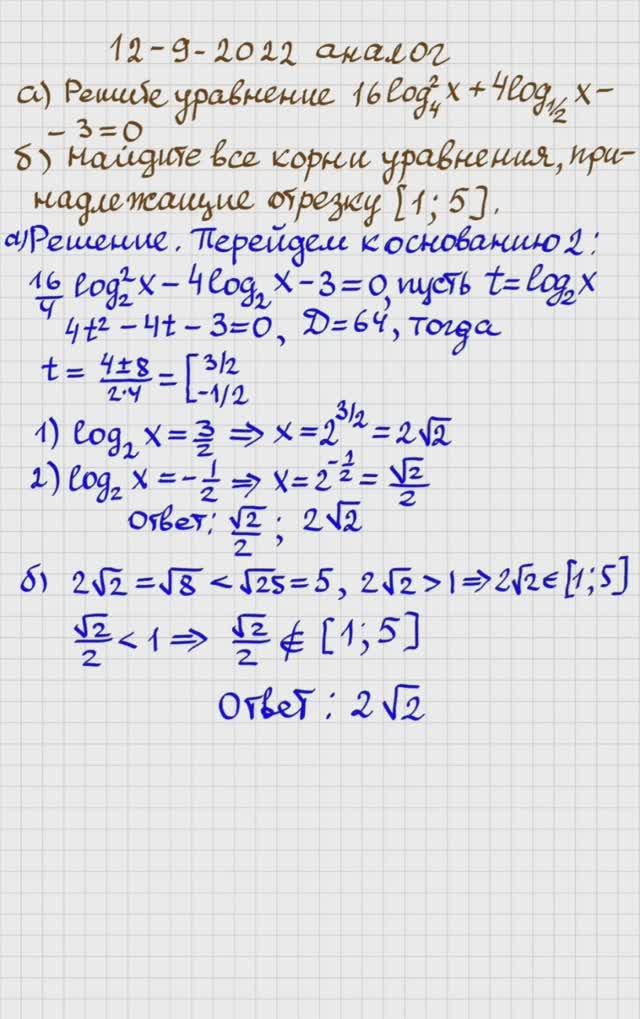 12-9-2022 аналог
а) Решите уравнение 16log₄²x+4log₁/₂x-
-3=0
б) Найдите все корни уравнения, при-
надлежащие отрезку [1; 5].
а) Решение. Перейдем к основанию 2:
16/4 log₂²x-4log₂x-3=0, пусть t=log₂x
4t²-4t-3=0, D=64, тогда
t = (4±8)/(2·4) = [3/2 -1/2
1) log₂x=3/2 ⇒ x=2^(3/2)=2√2
2) log₂x=-1/2 ⇒ x=2^(-1/2)=√2/2
Ответ: √2/2; 2√2
б) 2√2=√8<√25=5, 2√2>1⇒2√2∈[1;5]
√2/2<1⇒ √2/2∉[1;5]
Ответ: 2√2